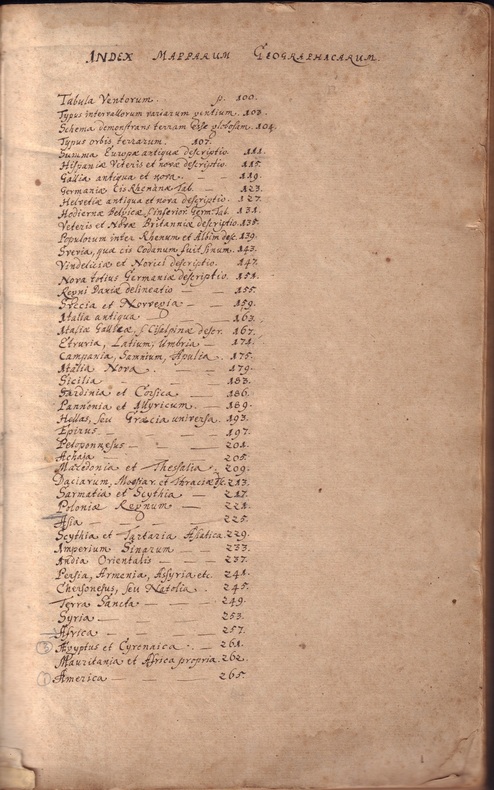 INDEX MAPPARUM GEOGRAPHICARUM.
Tabula Ventorum. p. 100.
Typus intervallorum variarum gentium. 103.
Schema demonstrans terram esse globosam. 104.
Typus orbis terrarum. 107.
Summa Europæ antiquæ descriptio. 111.
Hispaniæ Veteris et novæ descriptio. 115.
Gallia antiqua et nova. — 119.
Germaniæ CisRhenanæ Tab. — 123.
Helvetiæ antiqua et nova descriptio. 127.
Hodiernæ Belgicæ s. inferior. Germ. Tab. 131.
Veteris et Novæ Britanniæ descriptio. 135.
Populorum inter Rhenum et Albim desc. 139.
Svevia, quæ cis Codanum fuit sinum. 143.
Vindeliciæ et Norici descriptio. 147.
Nova totius Germaniæ descriptio. 151.
Regni Daniæ delineatio — — 155.
Svecia et Norvegia — — 159.
Italia antiqua — — 163.
Italia Gallica, s. Cisalpinæ descr. 167.
Etruria, Latium, Umbria — 171.
Campania, Samnium, Apulia. 175.
Italia Nova. — — 179.
Sicilia — — — 183.
Sardinia et Corsica — — 186.
Pannonia et Illyricum — — 189.
Hellas, seu Græcia universa. 193.
Epirus — — — 197.
Peloponnesus — — 201.
Achaia — — — 205.
Macedonia et Thessalia. 209.
Daciarum, Moesiar. et Thraciæ 213.
Sarmatia et Scythia — 217.
Poloniæ Regnum — — 221.
Asia — — — 225.
Scythia et Tartaria Asiatica. 229.
Imperium Sinarum — — 233.
India Orientalis — — 237.
Persia, Armenia, Assyria etc. 241.
Chersonesus, seu Natolia. 245.
Terra Sancta — — 249.
Syria — — — 253.
Africa — — — 257.
Ægyptus et Cyrenaica — 261.
Mauritania et Africa propria. 262.
America — — — 265.